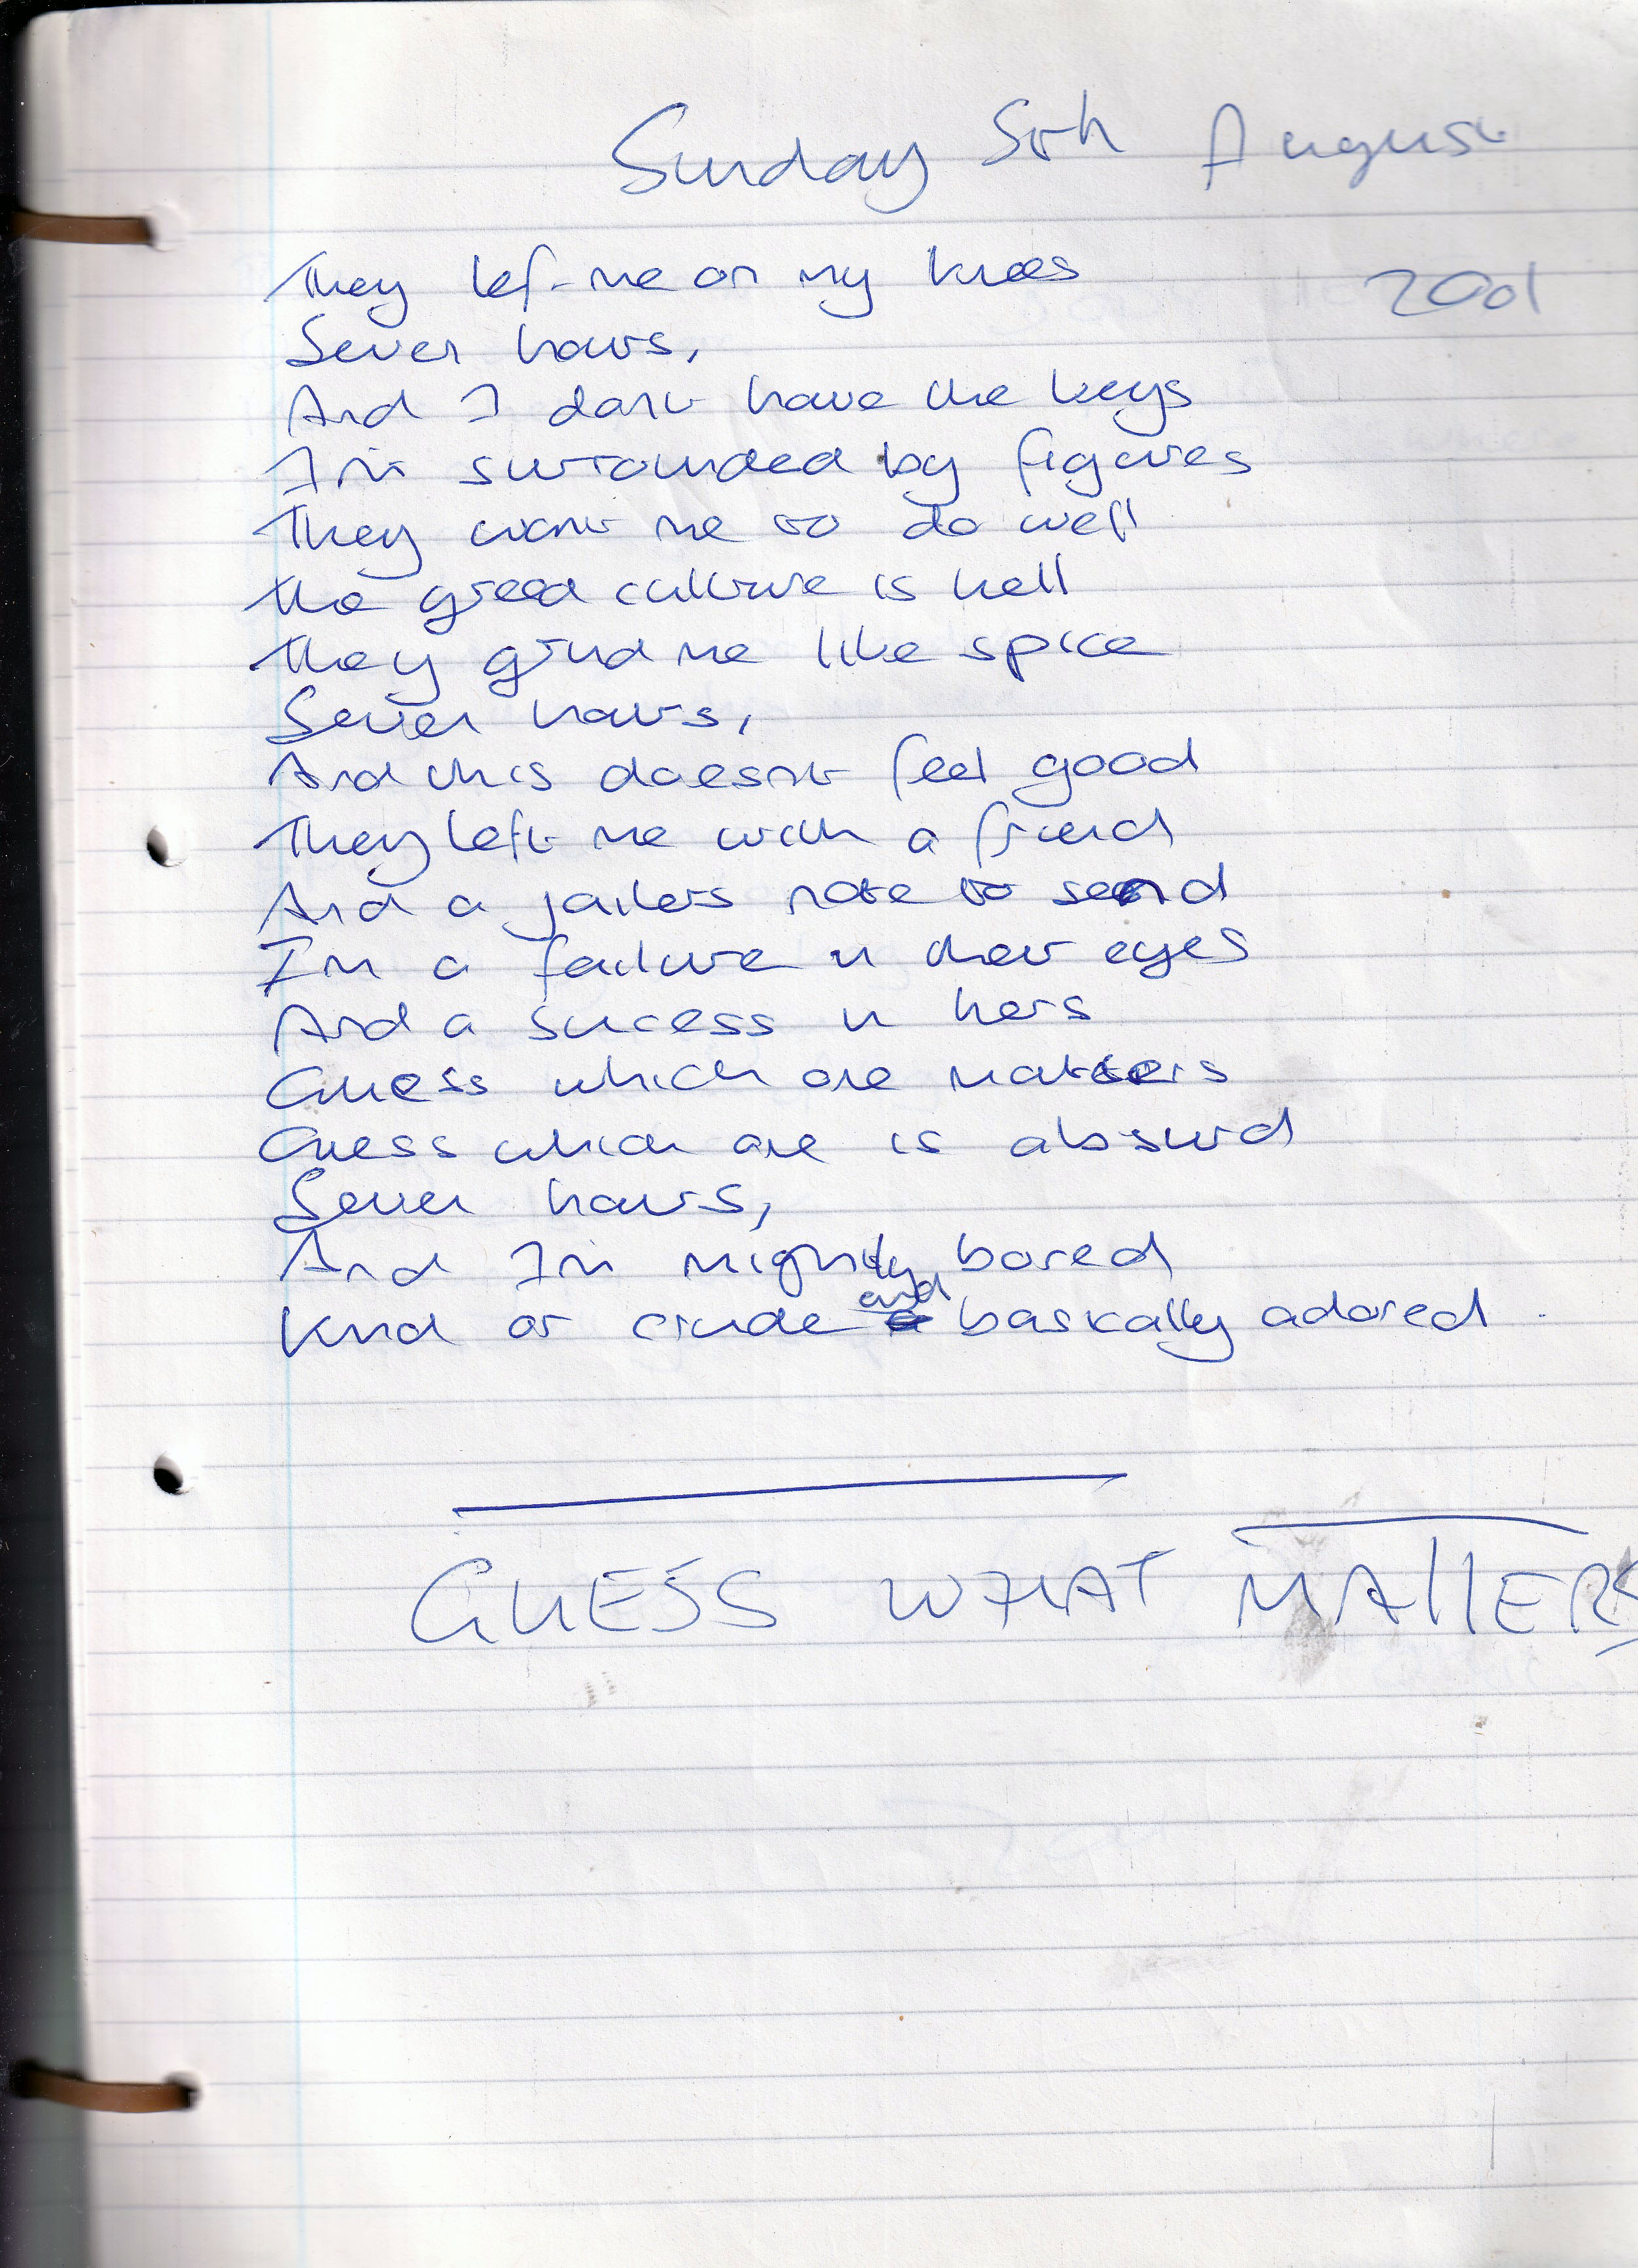 Sunday 5th August
2001
They left me on my knees
Seven hours,
And I dont have the keys
I'm surrounded by figures
They want me to do well
The greed culture is hell
They grind me like spice
Seven hours,
And this doesnt feel good
They left me with a friend
And a jailers note to send
Im a failure in their eyes
And a sucess in hers
Guess which one matters
Guess which one is absurd
Seven hours,
And I'm mighty bored
Kind or crude and basically adored
GUESS WHAT MATTERS